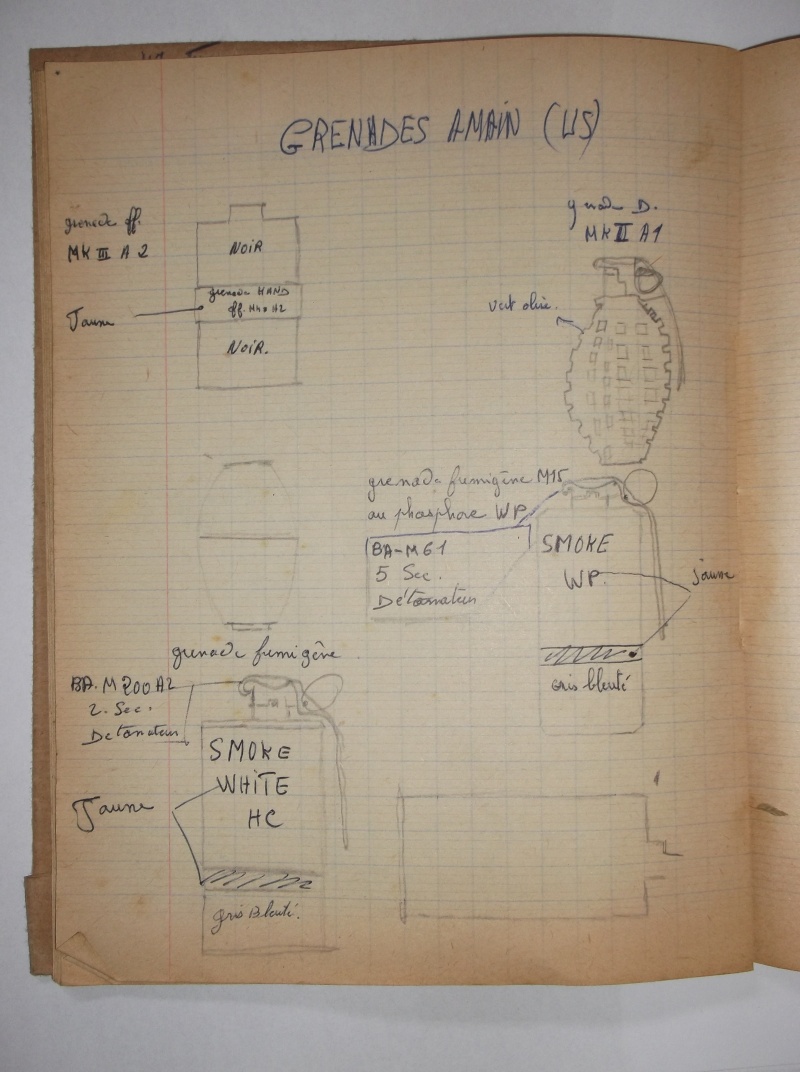 GRENADES A MAIN (US)
grenade off.
MK III A 2
NOIR
grenade HAND
off. MK III A2
Jaune
NOIR.
grenade D.
MK II A1
Vert olive.
grenade fumigène M15
au phosphore WP
BA-M61
5 Sec.
Détonateur
SMOKE
WP.
Jaune
Gris bleuté
grenade fumigène
BA. M200A2
2. Sec.
Detonateur
SMOKE
WHITE
HC
Jaune
gris Bleuté.